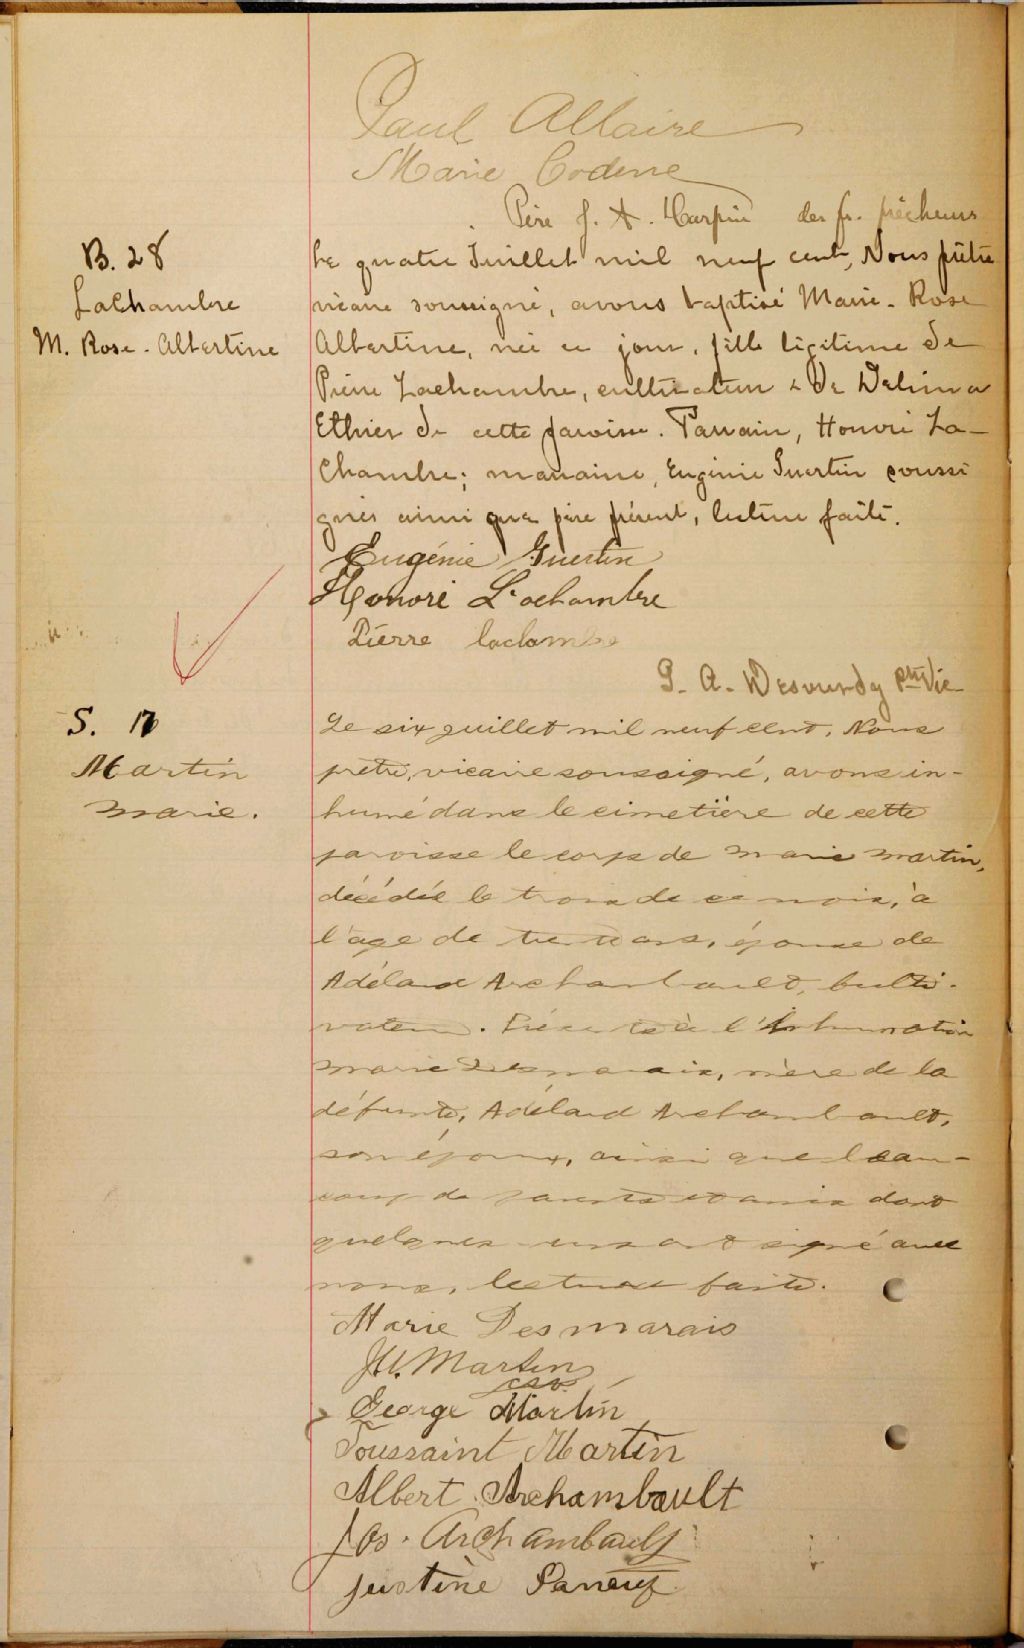 Paul Allaire
Marie Coderre
Père J. A. Harpin des fr. prêcheurs
B. 28
LaChambre
M. Rose-Albertine
Le quatre Juillet mil neuf cent, Nous prêtre
vicaire soussigné, avons baptisé Marie-Rose
Albertine, née ce jour, fille légitime de
Pierre Lachambre, cultivateur & de Delima
Ethier de cette paroisse. Parrain, Honoré La-
Chambre; marraine, Eugénie Guertin soussi
gnés ainsi que père présent, lecture faite.
Eugénie Guertin
Honoré Lachambre
Pierre lachambre
G. A. Desourdy ptre Vic
S. 17
Martin
Marie.
Le six juillet mil neuf cent, Nous
prêtre, vicaire soussigné, avons in-
humé dans le cimetière de cette
paroisse le corps de Marie Martin,
décédée le trois de ce mois, à
l'age de trente ans, épouse de
Adélard Archambault, culti-
vateur. Présents à l'inhumation
Marie Desmarais, mère de la
défunte, Adélard Archambault,
son époux, ainsi que beau-
coup de parents et amis dont
quelques uns ont signé avec
nous, lecture faite.
Marie Desmarais
Martin
csv.
George Martin
Toussaint Martin
Albert Archambault
Jos. Archambault
Justine Paneuf